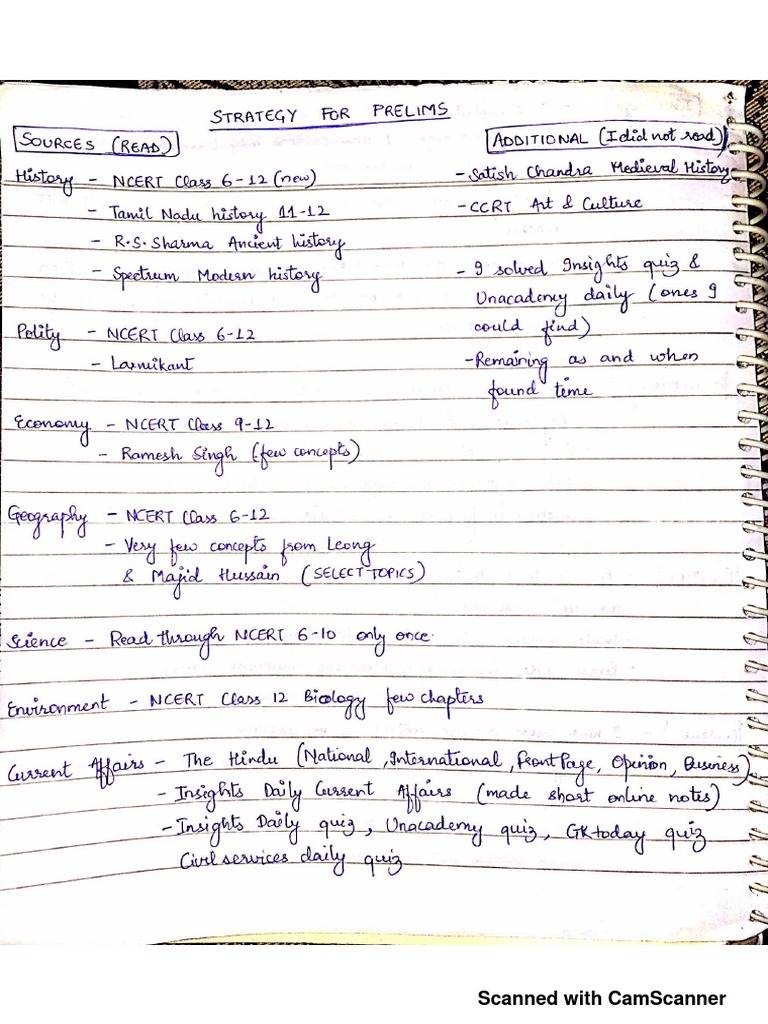 STRATEGY FOR PRELIMS
SOURCES (READ)
History - NCERT Class 6-12 (new)
- Tamil Nadu history 11-12
- R.S. Sharma Ancient history
- Spectrum Modern history
Polity - NCERT Class 6-12
- Laxmikant
Economy - NCERT Class 9-12
- Ramesh Singh (few concepts)
Geography - NCERT Class 6-12
- Very few concepts from Leong
& Majid Hussain (SELECT TOPICS)
Science - Read through NCERT 6-10 only once.
Environment - NCERT Class 12 Biology few chapters
Current Affairs - The Hindu (National, International, Front Page, Opinion, Business)
- Insights Daily Current Affairs (made short online notes)
- Insights Daily quiz, Unacademy quiz, GKtoday quiz
Civil services daily quiz
ADDITIONAL (I did not read)
- Satish Chandra Medieval History
- CCRT Art & Culture
- I solved Insights quiz &
Unacademy daily (ones I
could find)
- Remaining as and when
found time
Scanned with CamScanner